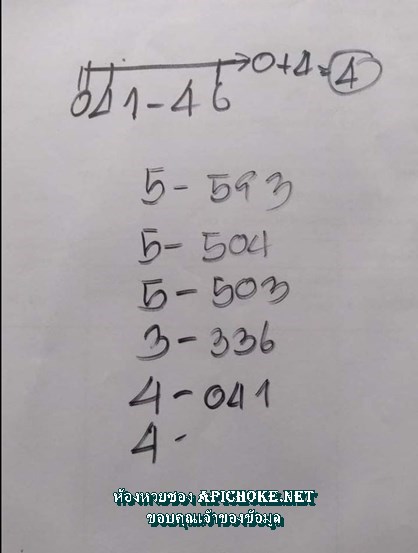 0+4=4
041-46
5-593
5-504
5-503
3-336
4-041
4-
ห้องหวยซอง APICHOKE.NET
ขอบคุณเจ้าของข้อมูล